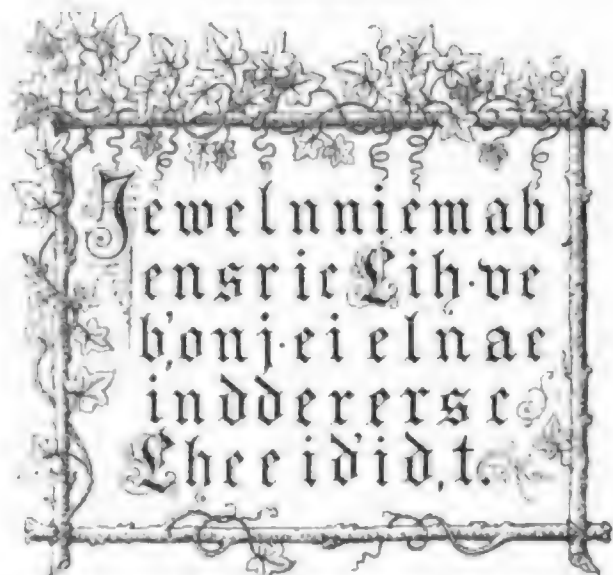 Jewelnniemab
ensric Lih·ve
b,onj·ei elnae
indderersc
Lheeid'id,t.